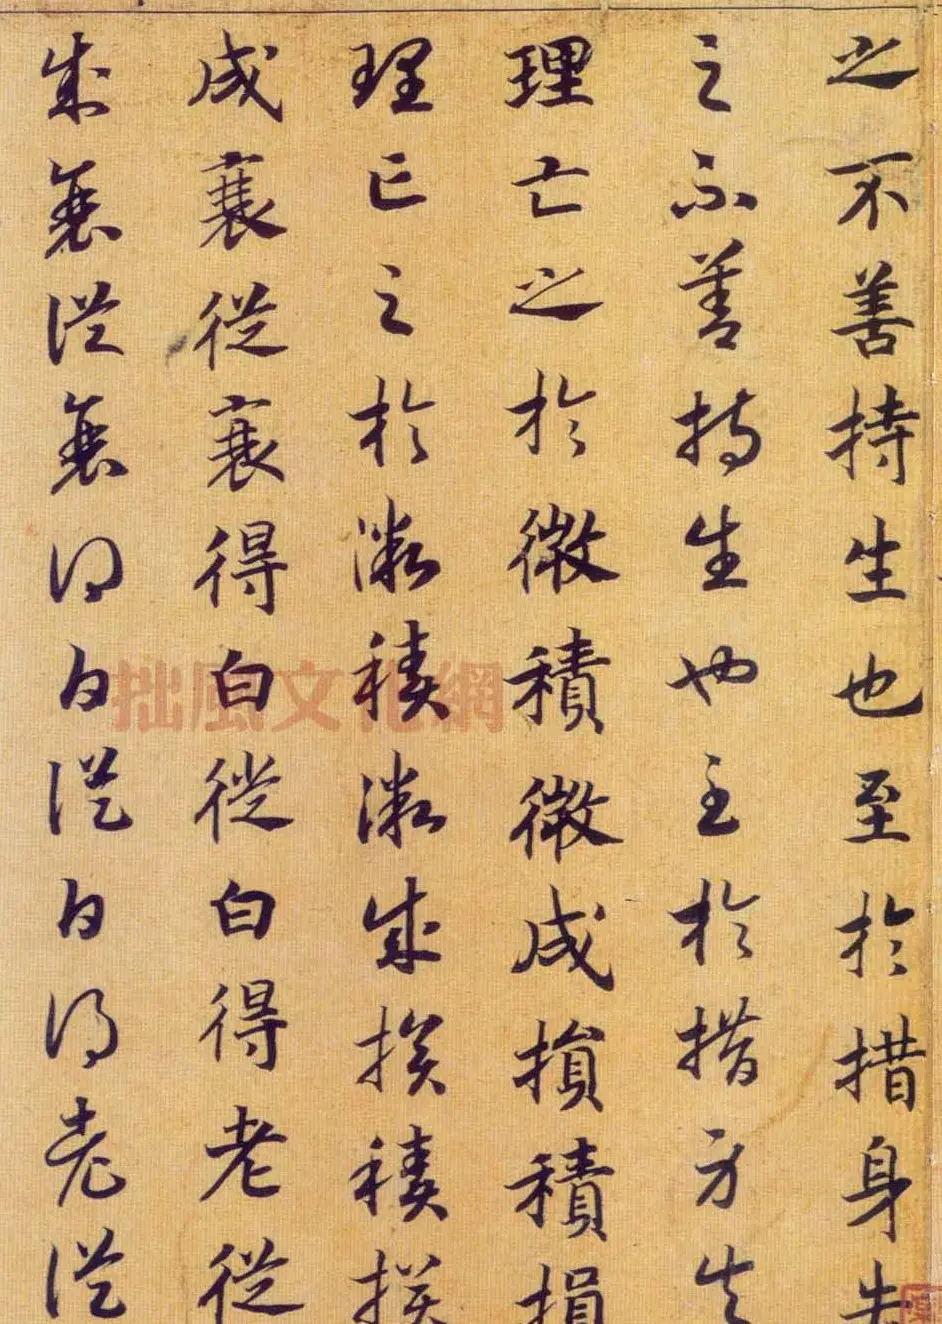 之不善持生也至於措身失
之不善持生也至於措身失
理亡之於微積微成損積損
理亡之於微積微成損積損
成衰從衰得白從白得老從
成衰從衰得白從白得老從
拙風文化網